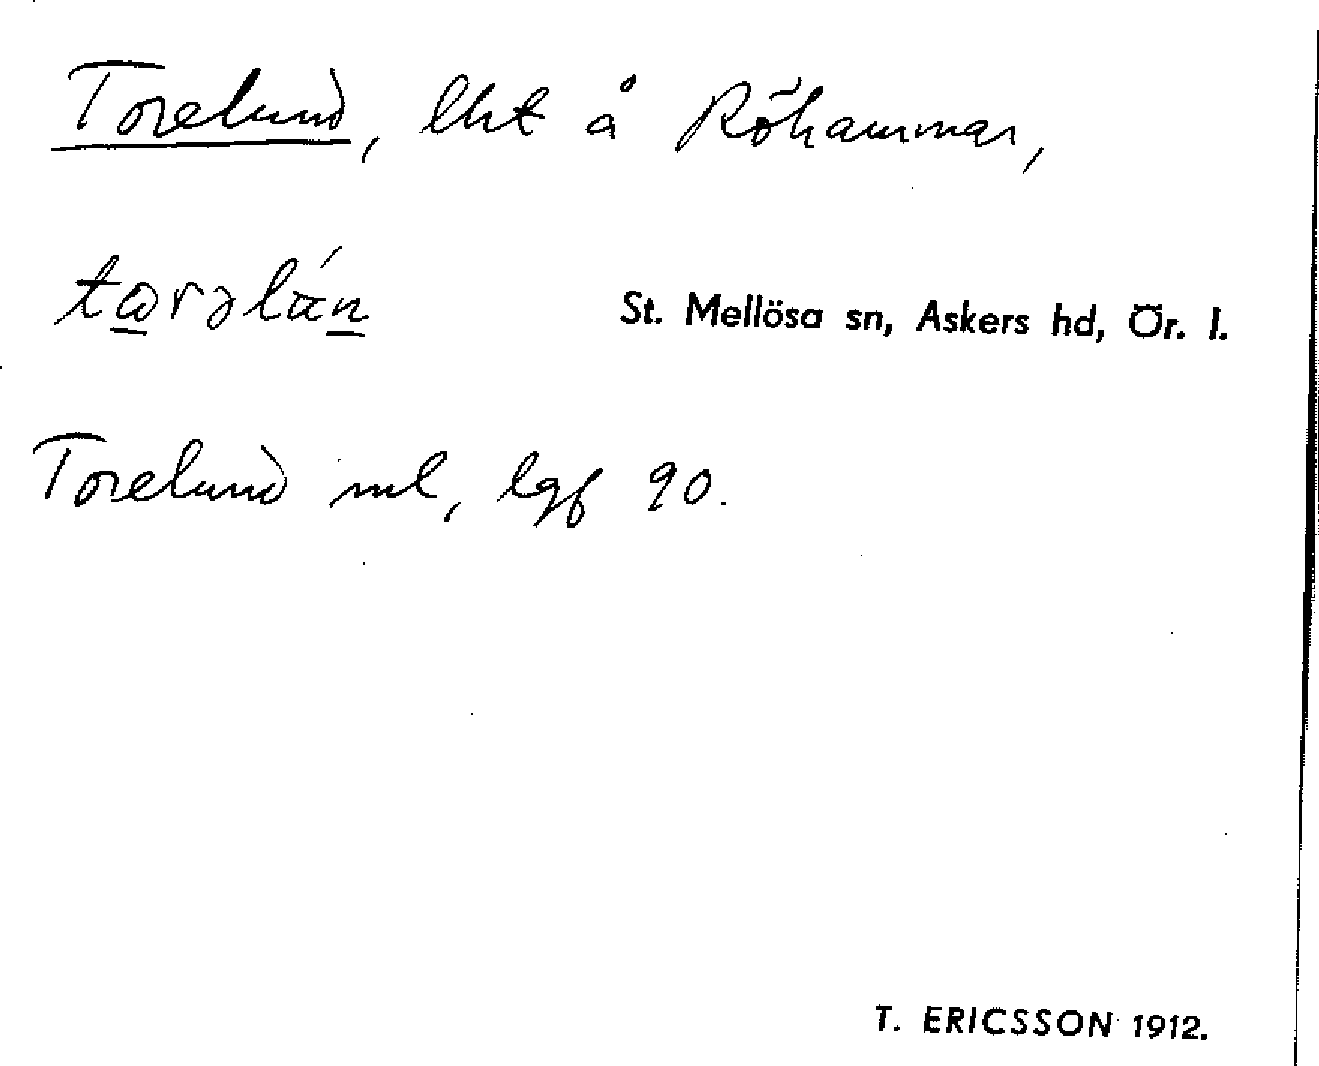 Torelund, lht å Röhammar,
tarəlún
St. Mellösa sn, Askers hd, Ör. l.
Torelund ml, lgf 90.
T. ERICSSON 1912.